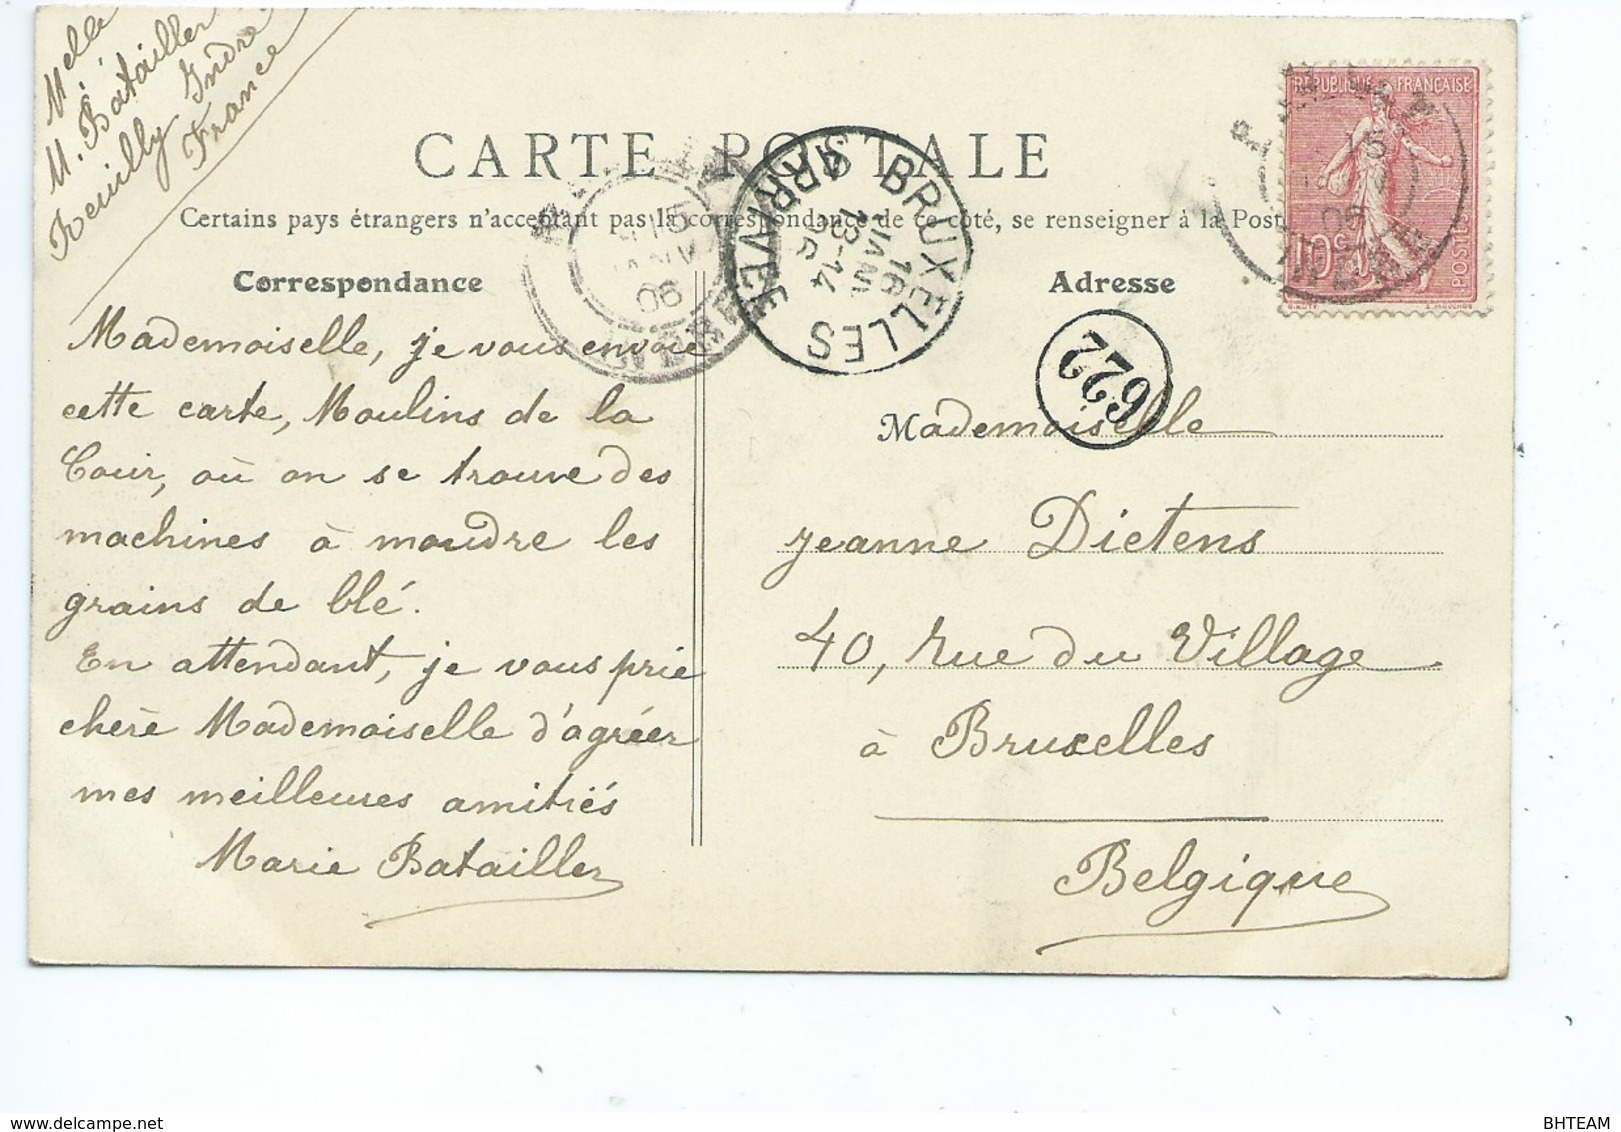 Melle
M. Batailler
Reuilly Indre
France
CARTE POSTALE
Certains pays étrangers n'acceptant pas la correspondance de ce côté, se renseigner à la Post
Correspondance
Mademoiselle, je vous envoie
cette carte, Moulins de la
Cour, où on se trouve des
machines à moudre les
grains de blé.
En attendant, je vous prie
chère Mademoiselle d'agréer
mes meilleures amitiés
Marie Batailler
15
JANV
06
BRUXELLES
ARRIVEE
16
JANV
13-14
06
RÉPUBLIQUE FRANÇAISE
10c
POSTES
Adresse
622
Mademoiselle
Jeanne Dietens
40, rue du Village
à Bruxelles
Belgique
BHTEAM